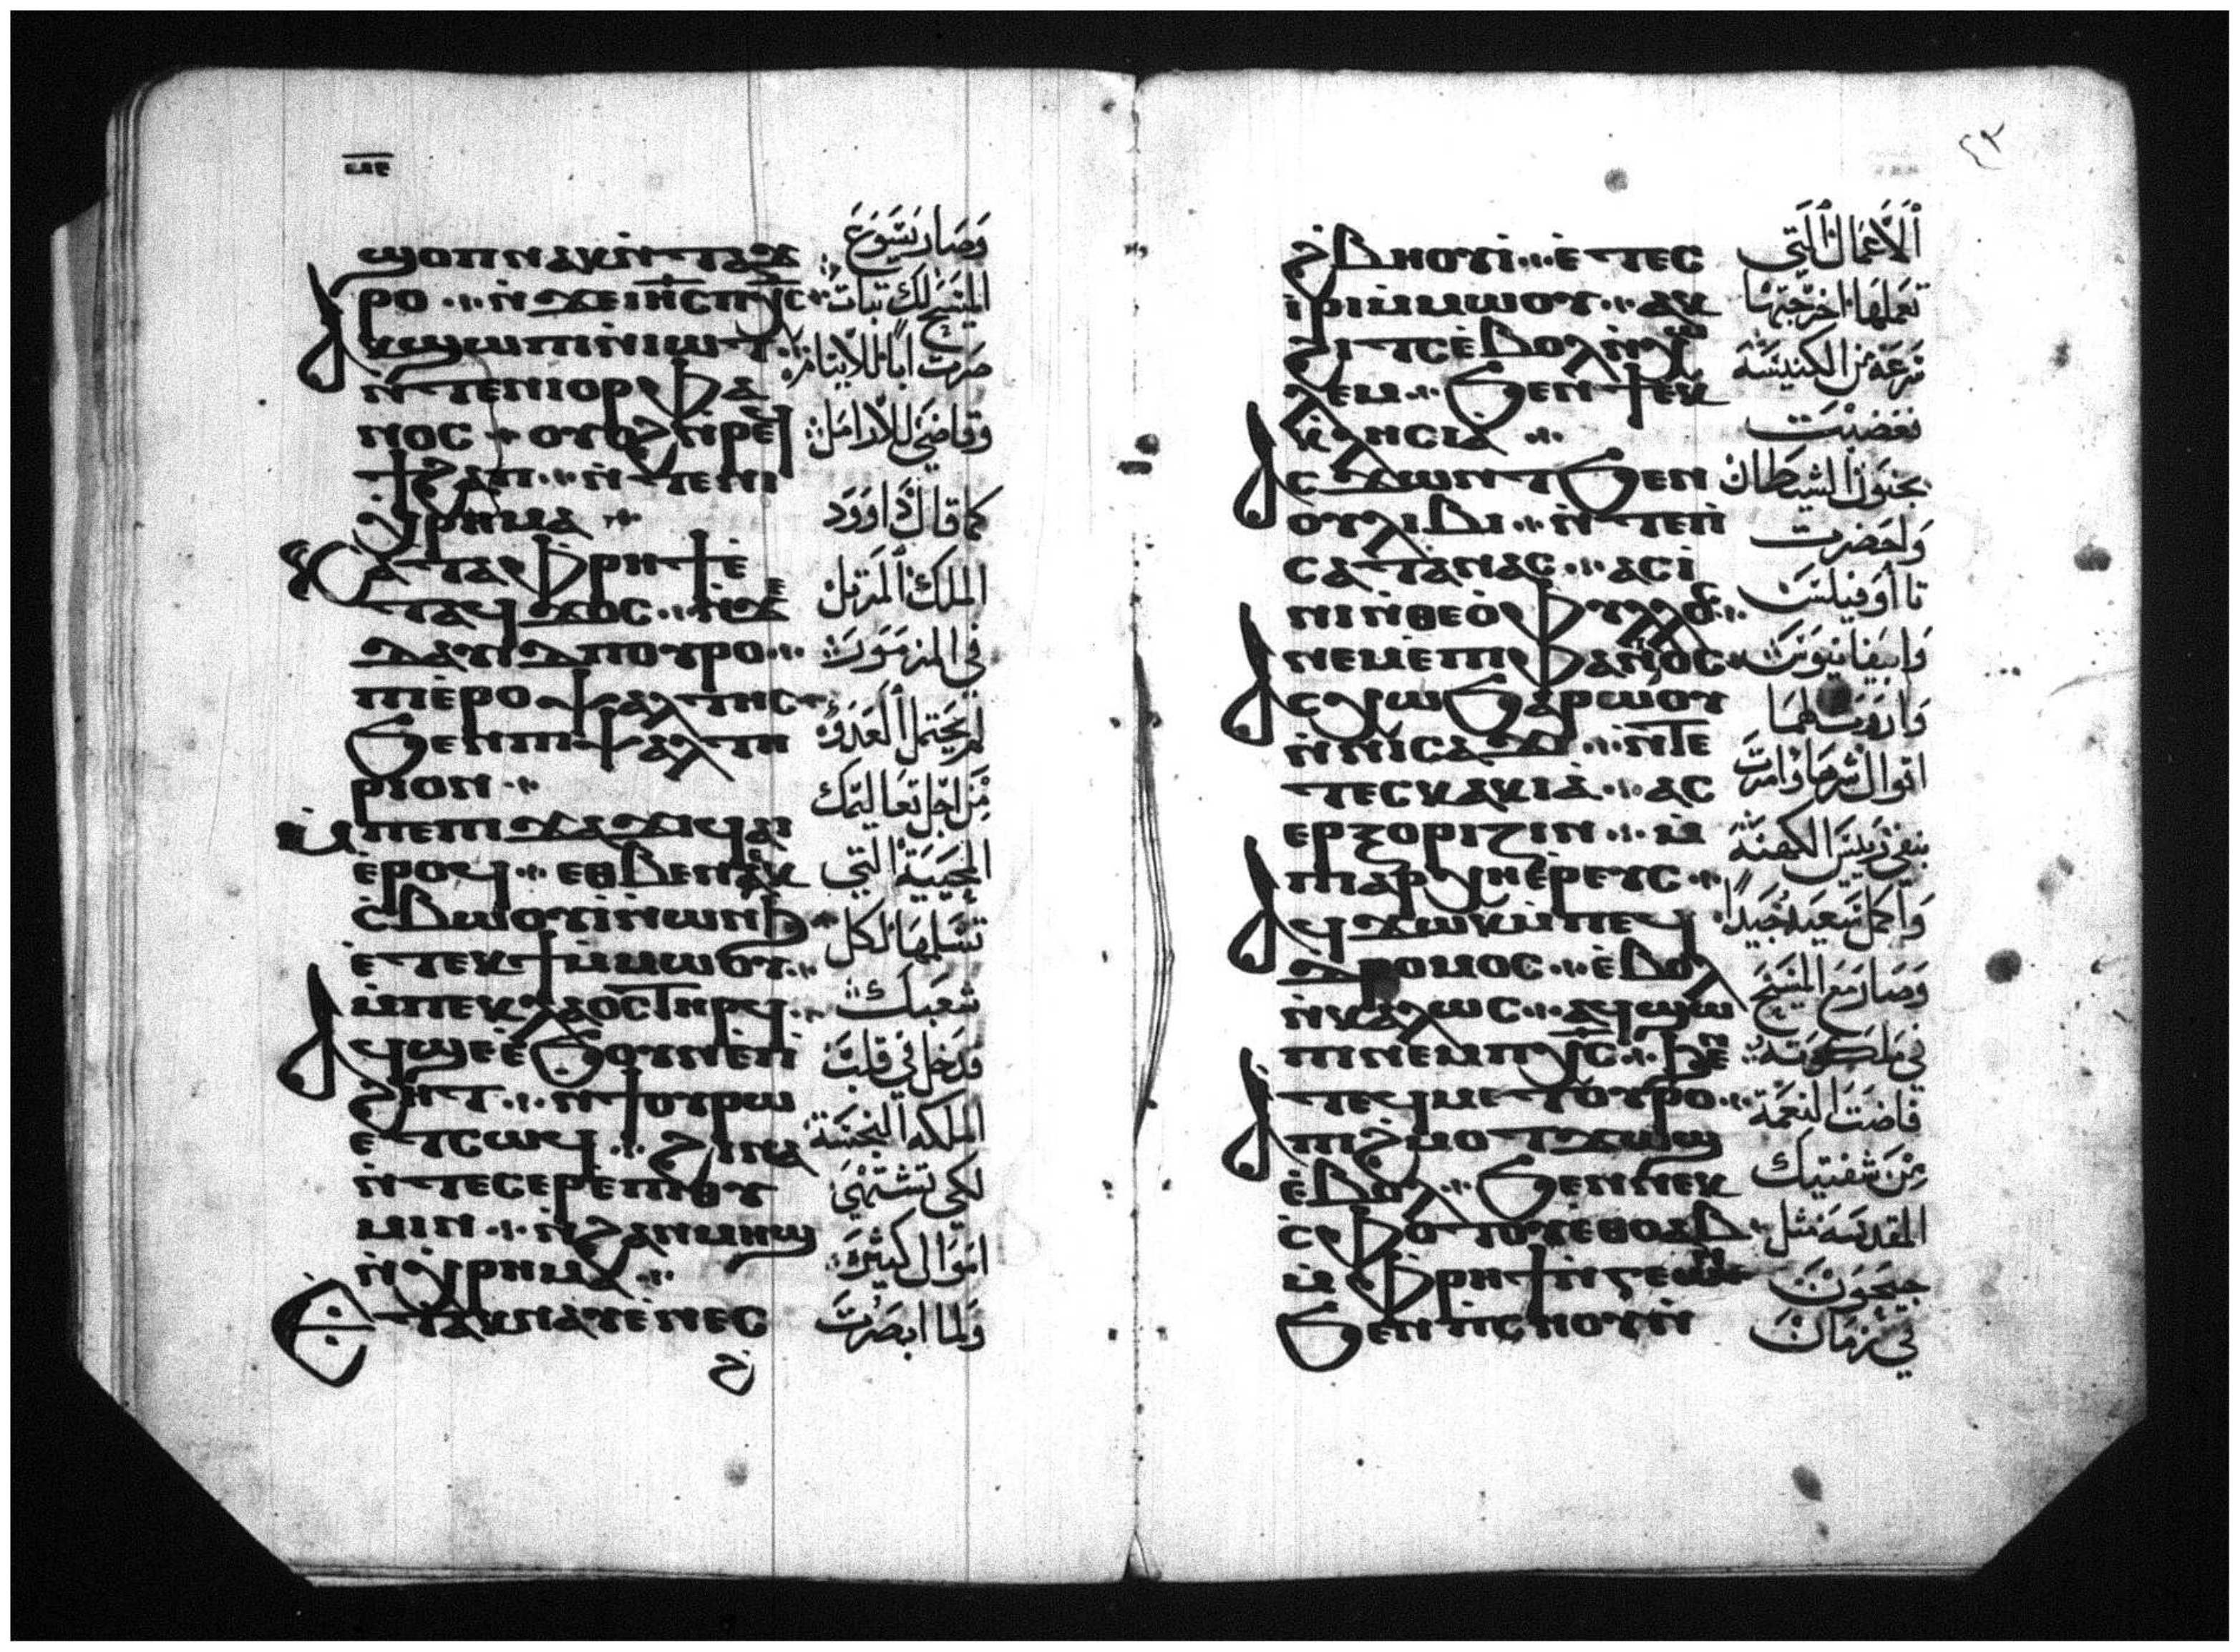 ϣⲟⲡⲛⲁⲕⲛ̀ⲧⲁϫ
ⲣⲟ ⲛ̀ϫⲉⲓⲏ̅ⲥ̅ ⲡ̅ⲭ̅ⲥ̅
ⲁⲕϣⲱⲡⲓⲛ̀ⲓⲱⲧ
ⲛ̀ⲧⲉⲛⲓⲟⲣⲫⲁ
ⲛⲟⲥ ⲟⲩⲟϩⲛ̀ⲣⲉϥ
ϯϩⲁⲡ ⲛ̀ⲧⲉⲛⲓ
ⲭⲏⲣⲁ
ⲕⲁⲧⲁⲫⲣⲏϯⲉ̀
ⲧⲁϥϫⲟⲥ ⲛ̀ϫⲉ
ⲇⲁⲩⲓⲇⲡⲟⲩⲣⲟ
ⲡⲓⲉ̀ⲣⲟⲯⲁⲗⲧⲏⲥ
ϧⲉⲛⲡⲓⲯⲁⲗⲧⲏ
ⲣⲓⲟⲛ
ⲙ̀ⲡⲉⲡⲓϫⲁϫⲓϥⲁⲓ
ⲉ̀ⲣⲟϥ ⲉⲑⲃⲉⲛⲉⲕ
ⲥ̀ⲃⲱⲟⲩⲓ̀ⲛ̀ⲱⲛϧ
ⲉ̀ⲧⲉⲕϯⲙ̀ⲙⲱⲟⲩ
ⲙ̀ⲡⲉⲕⲗⲁⲟⲥⲧⲏⲣϥ
ⲁϥϣⲉⲉ̀ϧⲟⲩⲛⲉ̀ⲡ
ϩⲏⲧ ⲛ̀ϯⲟⲩⲣⲱ
ⲉⲧⲥⲱϥ ϩⲓⲛⲁ
ⲛ̀ⲧⲉⲥⲉⲣⲉ̀ⲡⲓⲑⲩ
ⲙⲓⲛ ⲛ̀ϩⲁⲛⲙⲏϣ
ⲛ̀ⲭⲣⲏⲙⲁ
ⲉⲧⲁⲕⲛⲁⲩⲉ̀ⲛⲉⲥ
وصار يسوع
المسيح لك ثبات
صرت ابا للايتام
وقاضي للارامل
كما قال داوود
الملك المرتل
في المزمور
لم يحتمل العدو
من اجل تعاليمك
المحيية التي
تسلمها لكل
شعبك
فدخل في قلب
الملكه النجسة
لكي تشتهي
اموال كثيره
ولما ابصرت
٤٣
ϩ̀ⲃⲏⲟⲩⲓ̀ ⲉ̀ⲧⲉⲥ
ⲓ̀ⲣⲓⲙ̀ⲙⲱⲟⲩ ⲁⲕ
ϩⲓⲧⲥⲉ̀ⲃⲟⲗⲛ̀ⲭⲱ
ⲗⲉⲙ ϧⲉⲛϯⲉⲕ
ⲕⲗⲏⲥⲓⲁ
ⲁⲥϫⲱⲛⲧϧⲉⲛ
ⲟⲩⲗⲓⲃⲓ ⲛ̀ⲧⲉⲡ
ⲥⲁⲧⲁⲛⲁⲥ ⲁⲥⲓ̀
ⲛⲓⲛ̀ⲑⲉⲟ̀ⲫⲩⲗⲟⲥ
ⲛⲉⲙⲉ̀ⲡⲓⲫⲁⲛⲓⲟⲥ
ⲁⲥⲭⲱϧⲁⲣⲱⲟⲩ
ⲛ̀ⲛⲓⲥⲁϫⲓ ⲛ̀ⲧⲉ
ⲧⲉⲥⲕⲁⲕⲓⲁ̀ ⲁⲥ
ⲉⲣⲝⲟⲣⲓⲍⲓⲛ ⲙ̀
ⲡⲓⲁⲣⲭⲏⲉ̀ⲣⲉⲩⲥ
ⲁϥϫⲱⲕⲙ̀ⲡⲉϥ
ⲇⲣⲟⲙⲟⲥ ⲉ̀ⲃⲟⲗ
ⲛ̀ⲕⲁⲗⲱⲥ ⲁϥϣⲱ
ⲡⲓⲛⲉⲙⲡ̅ⲭ̅ⲥ̅ ϧⲉⲛ
ⲧⲉϥⲙⲉⲧⲟⲩⲣⲟ
ⲁⲡⲓϩ̀ⲙⲟⲧϫⲱϣ
ⲉ̀ⲃⲟⲗ ϧⲉⲛⲛⲉⲕ
ⲥ̀ⲫⲟⲧⲟⲩⲉⲑⲟⲩⲁⲃ
ⲙ̀ⲫⲣⲏϯⲛ̀ⲅⲉⲱⲛ
ϧⲉⲛⲡⲥⲏⲟⲩⲛ̀
الاعمال التي
تعملها اخرجتها
بسرعة من الكنيسة
فغضبت
بجنون الشيطان
واحضرت
تاأوفيلس
وابيفانيوس
واروت لهما
اقوال شرها وامرت
بنفي رييس الكهنة
واكمل سعيه جيدا
وصار مع المسيح
في ملكوته
فاضت النعمة
من شفتيك
المقدسة مثل
جيحون
في زمان